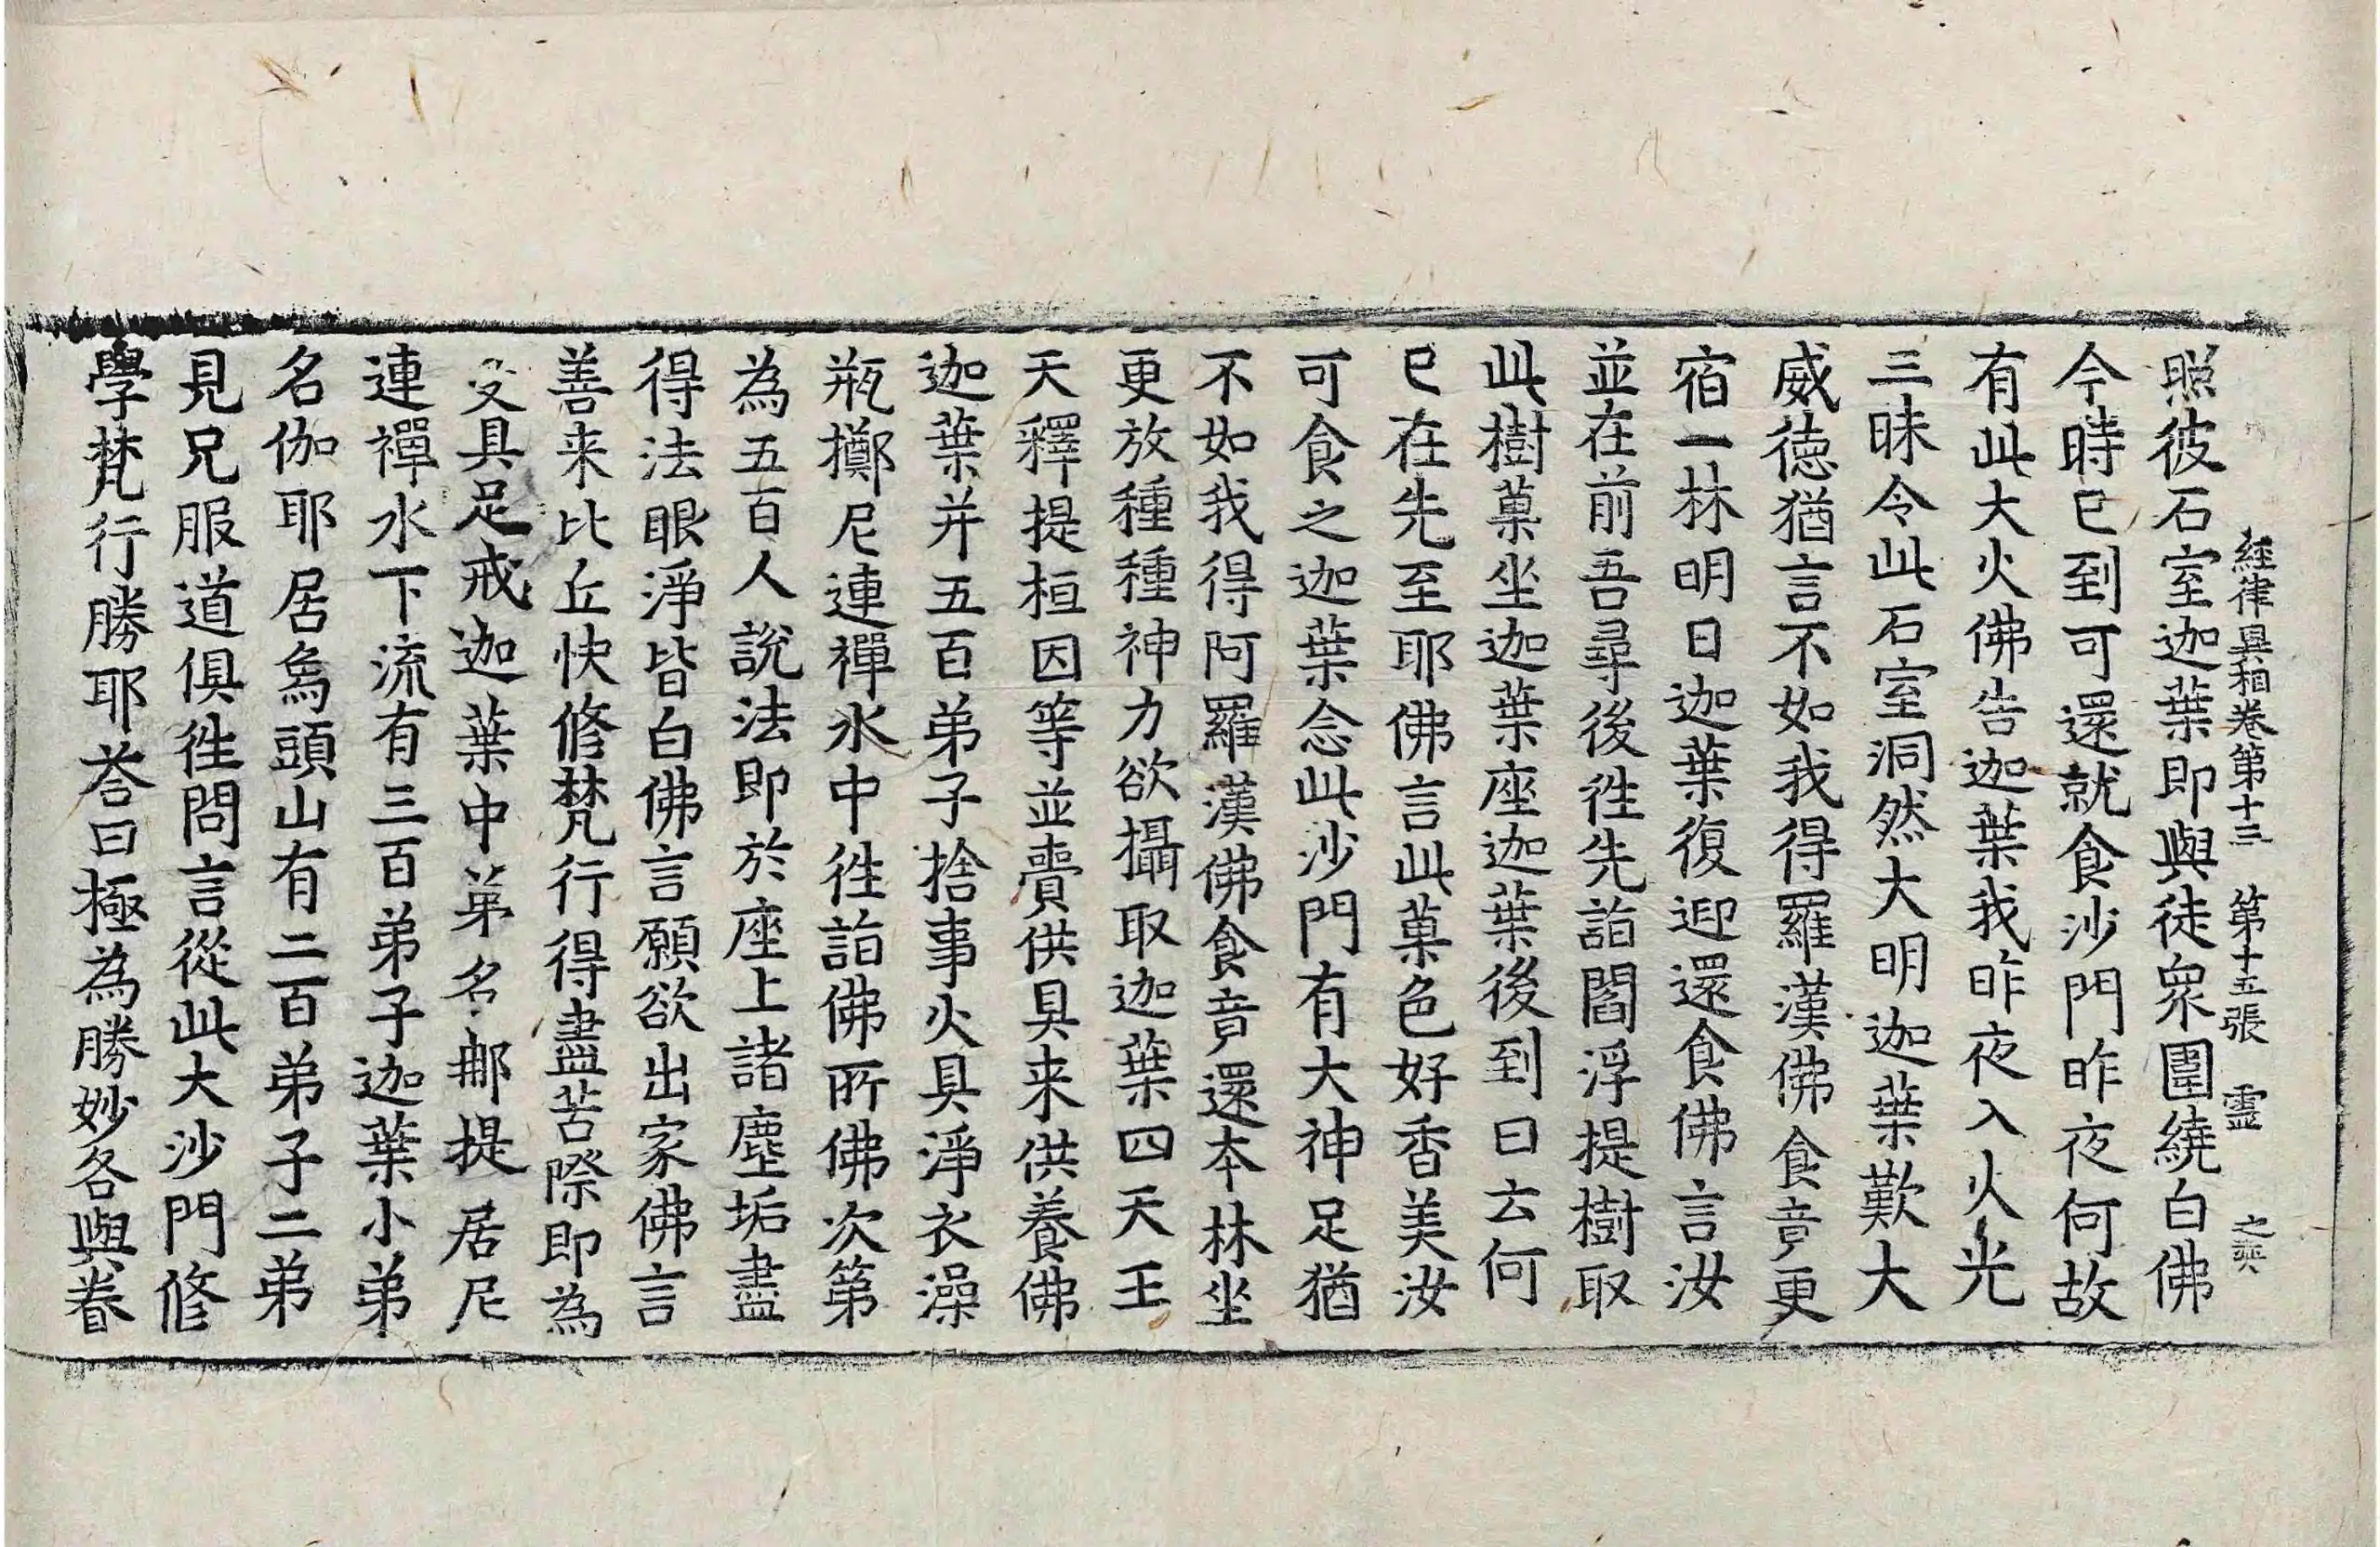 經律異相卷第十三 第十五張 靈 之英
照彼石室迦葉即與徒眾圍繞白佛
今時已到可還就食沙門昨夜何故
有此大火佛告迦葉我昨夜入火光
三昧令此石室洞然大明迦葉歎大
威德猶言不如我得羅漢佛食竟更
宿一林明日迦葉復迎還食佛言汝
並在前吾尋後徃先詣閻浮提樹取
此樹菓坐迦葉座迦葉後到曰云何
已在先至耶佛言此菓色好香美汝
可食之迦葉念此沙門有大神足猶
不如我得阿羅漢佛食竟還本林坐
更放種種神力欲攝取迦葉四天王
天釋提桓因等並賷供具来供養佛
迦葉并五百弟子捨事火具淨衣澡
瓶擲尼連禪水中徃詣佛所佛次第
為五百人說法即於座上諸塵垢盡
得法眼淨皆白佛言願欲出家佛言
善来比丘快修梵行得盡苦際即為
受具足戒迦葉中弟名那提居尼
連禪水下流有三百弟子迦葉小弟
名伽耶居烏頭山有二百弟子二弟
見兄服道俱徃問言從此大沙門修
學梵行勝耶荅曰極為勝妙各與眷